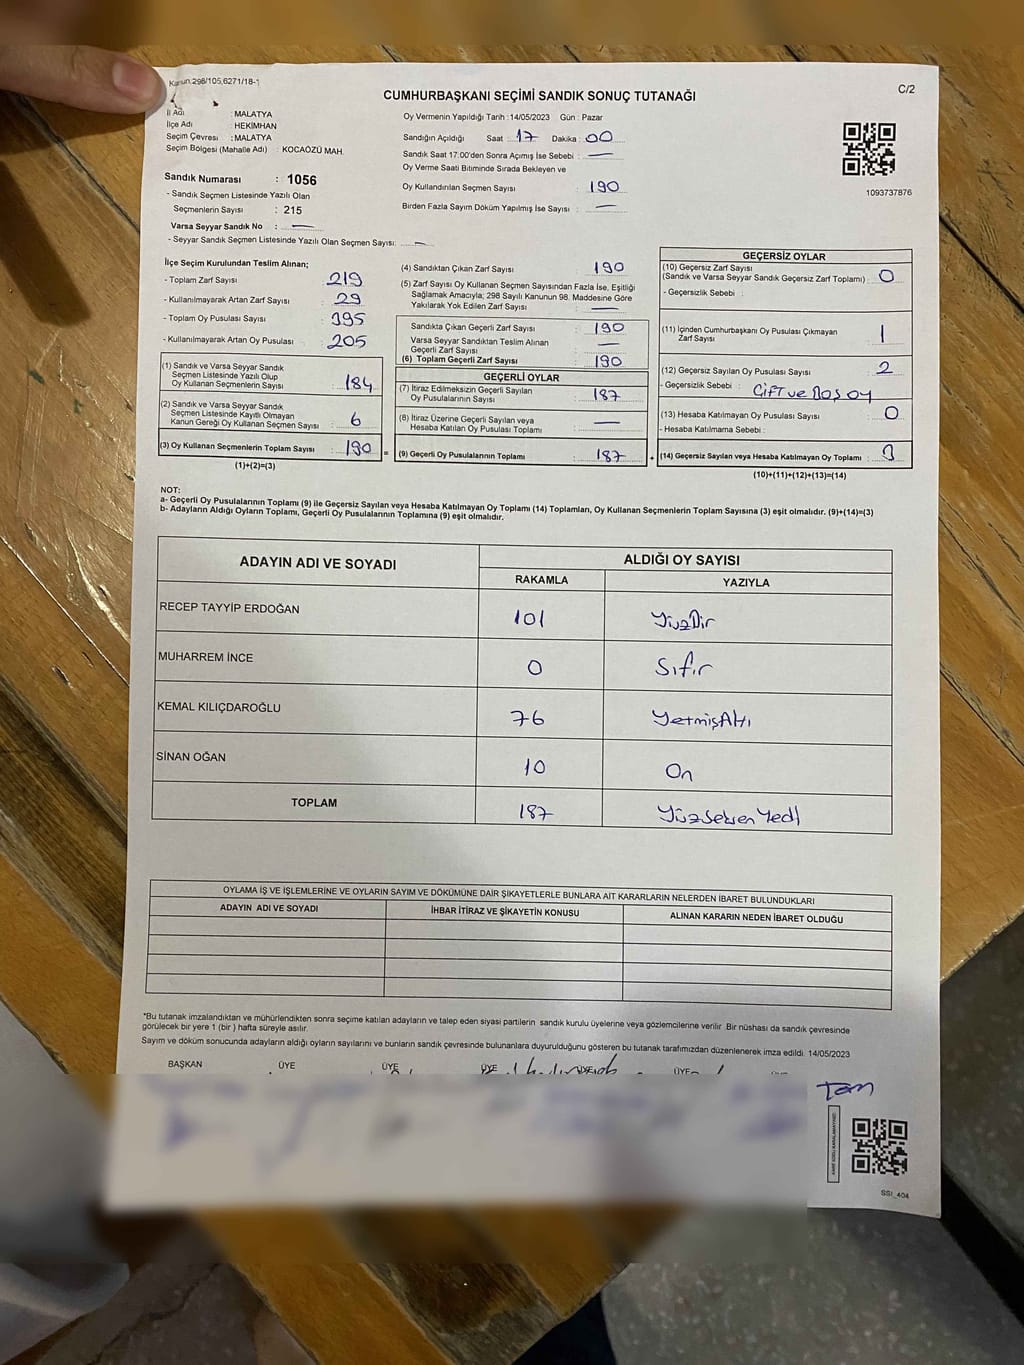 Kanun:298/105,6271/18-1
C/2
CUMHURBAŞKANI SEÇİMİ SANDIK SONUÇ TUTANAĞI
İl Adı : MALATYA
İlçe Adı : HEKİMHAN
Seçim Çevresi : MALATYA
Seçim Bölgesi (Mahalle Adı) : KOCAÖZÜ MAH.
Sandık Numarası : 1056
- Sandık Seçmen Listesinde Yazılı Olan
Seçmenlerin Sayısı : 215
Varsa Seyyar Sandık No : —
- Seyyar Sandık Seçmen Listesinde Yazılı Olan Seçmen Sayısı: —
Oy Vermenin Yapıldığı Tarih :14/05/2023 Gün : Pazar
Sandığın Açıldığı Saat : 17 Dakika : 00
Sandık Saat 17:00'den Sonra Açımış İse Sebebi : —
Oy Verme Saati Bitiminde Sırada Bekleyen ve
Oy Kullandırılan Seçmen Sayısı : 190
Birden Fazla Sayım Döküm Yapılmış İse Sayısı : —
1093737876
İlçe Seçim Kurulundan Teslim Alınan;
- Toplam Zarf Sayısı : 219
- Kullanılmayarak Artan Zarf Sayısı : 29
- Toplam Oy Pusulası Sayısı : 395
- Kullanılmayarak Artan Oy Pusulası : 205
(1) Sandık ve Varsa Seyyar Sandık
Seçmen Listesinde Yazılı Olup
Oy Kullanan Seçmenlerin Sayısı : 184
(2) Sandık ve Varsa Seyyar Sandık
Seçmen Listesinde Kayıtlı Olmayan
Kanun Gereği Oy Kullanan Seçmen Sayısı : 6
(3) Oy Kullanan Seçmenlerin Toplam Sayısı : 190 =
(1)+(2)=(3)
(4) Sandıktan Çıkan Zarf Sayısı : 190
(5) Zarf Sayısı Oy Kullanan Seçmen Sayısından Fazla İse, Eşitliği
Sağlamak Amacıyla; 298 Sayılı Kanunun 98. Maddesine Göre
Yakılarak Yok Edilen Zarf Sayısı : —
Sandıkta Çıkan Geçerli Zarf Sayısı : 190
Varsa Seyyar Sandıktan Teslim Alınan
Geçerli Zarf Sayısı : —
(6) Toplam Geçerli Zarf Sayısı : 190
GEÇERLİ OYLAR
(7) İtiraz Edilmeksizin Geçerli Sayılan
Oy Pusulalarının Sayısı : 187
(8) İtiraz Üzerine Geçerli Sayılan veya
Hesaba Katılan Oy Pusulası Toplamı : —
(9) Geçerli Oy Pusulalarının Toplamı : 187 +
GEÇERSİZ OYLAR
(10) Geçersiz Zarf Sayısı
(Sandık ve Varsa Seyyar Sandık Geçersiz Zarf Toplamı) : 0
- Geçersizlik Sebebi :
(11) İçinden Cumhurbaşkanı Oy Pusulası Çıkmayan
Zarf Sayısı : 1
(12) Geçersiz Sayılan Oy Pusulası Sayısı : 2
- Geçersizlik Sebebi : Çift ve Boş oy
(13) Hesaba Katılmayan Oy Pusulası Sayısı : 0
- Hesaba Katılmama Sebebi :
(14) Geçersiz Sayılan veya Hesaba Katılmayan Oy Toplamı : 3
(10)+(11)+(12)+(13)=(14)
NOT:
a- Geçerli Oy Pusulalarının Toplamı (9) ile Geçersiz Sayılan veya Hesaba Katılmayan Oy Toplamı (14) Toplamları, Oy Kullanan Seçmenlerin Toplam Sayısına (3) eşit olmalıdır. (9)+(14)=(3)
b- Adayların Aldığı Oyların Toplamı, Geçerli Oy Pusulalarının Toplamına (9) eşit olmalıdır.
ADAYIN ADI VE SOYADI ALDIĞI OY SAYISI
RAKAMLA YAZIYLA
RECEP TAYYİP ERDOĞAN 101 YüzBir
MUHARREM İNCE 0 Sıfır
KEMAL KILIÇDAROĞLU 76 YetmişAltı
SİNAN OĞAN 10 On
TOPLAM 187 YüzSeksenYedi
OYLAMA İŞ VE İŞLEMLERİNE VE OYLARIN SAYIM VE DÖKÜMÜNE DAİR ŞİKAYETLERLE BUNLARA AİT KARARLARIN NELERDEN İBARET BULUNDUKLARI
ADAYIN ADI VE SOYADI İHBAR İTİRAZ VE ŞİKAYETİN KONUSU ALINAN KARARIN NEDEN İBARET OLDUĞU
*Bu tutanak imzalandıktan ve mühürlendikten sonra seçime katılan adayların ve talep eden siyasi partilerin sandık kurulu üyelerine veya gözlemcilerine verilir .Bir nüshası da sandık çevresinde
görülecek bir yere 1 (bir ) hafta süreyle asılır.
Sayım ve döküm sonucunda adayların aldığı oyların sayılarını ve bunların sandık çevresinde bulunanlara duyurulduğunu gösteren bu tutanak tarafımızdan düzenlenerek imza edildi. 14/05/2023
BAŞKAN ÜYE ÜYE ÜYE ÜYE
Tam
SSI_404